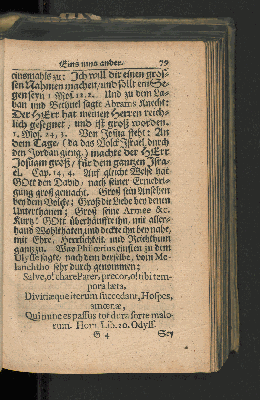 Eins ums ander. 79
einsmahls zu: Ich will dir einen gros-
sen Nahmen machen, und sollt ein Se-
gen seyn; 1. Mos. 12. 2. Und zu dem La-
ban und Bethuel sagte Abrams Knecht:
Der HErr hat meinen Herren reich-
lich gesegnet, und ist groß worden.
1. Mos. 24, 3. Von Josua steht: An
dem Tage (da das Volck Israel durch
den Jordan gieng) machte der HErr
Josuam groß, für dem gantzen Isra-
el. Cap. 14, 4. Auf gleiche Weise hat
GOtt den David, nach seiner Erniedri-
gung groß gemacht. Groß sein Ansehen
bey dem Volcke; Groß die Liebe bey denen
Unterthanen; Groß seine Armee &c.
Kurtz: GOtt überhäuffte ihn, mit aller-
hand Wohlthaten, und deckte ihn bey nahe,
mit Ehre, Herrlichkeit und Reichthum
gantz zu. Was Philœtius einsten zu dem
Ulysse sagte, nach dem derselbe, vom Me-
lanchtho sehr durch genommen;
Salve, o! chare Pater, precor, o! tibi tem-
pora læta,
Divitiæque iterum succedant, Hospes,
amœnæ,
Qui nunc es passus tot dura sorte malo-
rum. Hom. Lib. 20. Odyss.
G 4 Sey